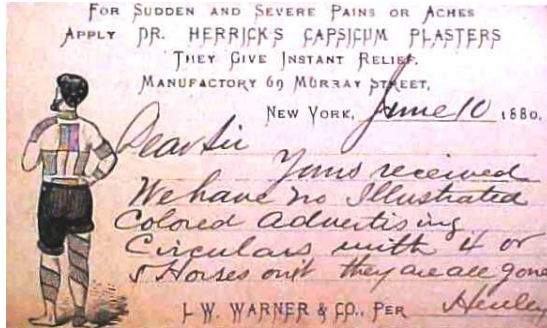 For Sudden and Severe Pains or Aches
Apply Dr. Herrick's Capsicum Plasters
They Give Instant Relief.
Manufactory 69 Murray Street,
New York, June 10 1880.
Dear Sir
Yours received
We have no Illustrated
Colored Advertising
Circulars with 4 or
5 Horses on it they are all gone
L. W. Warner & Co., Per Henley